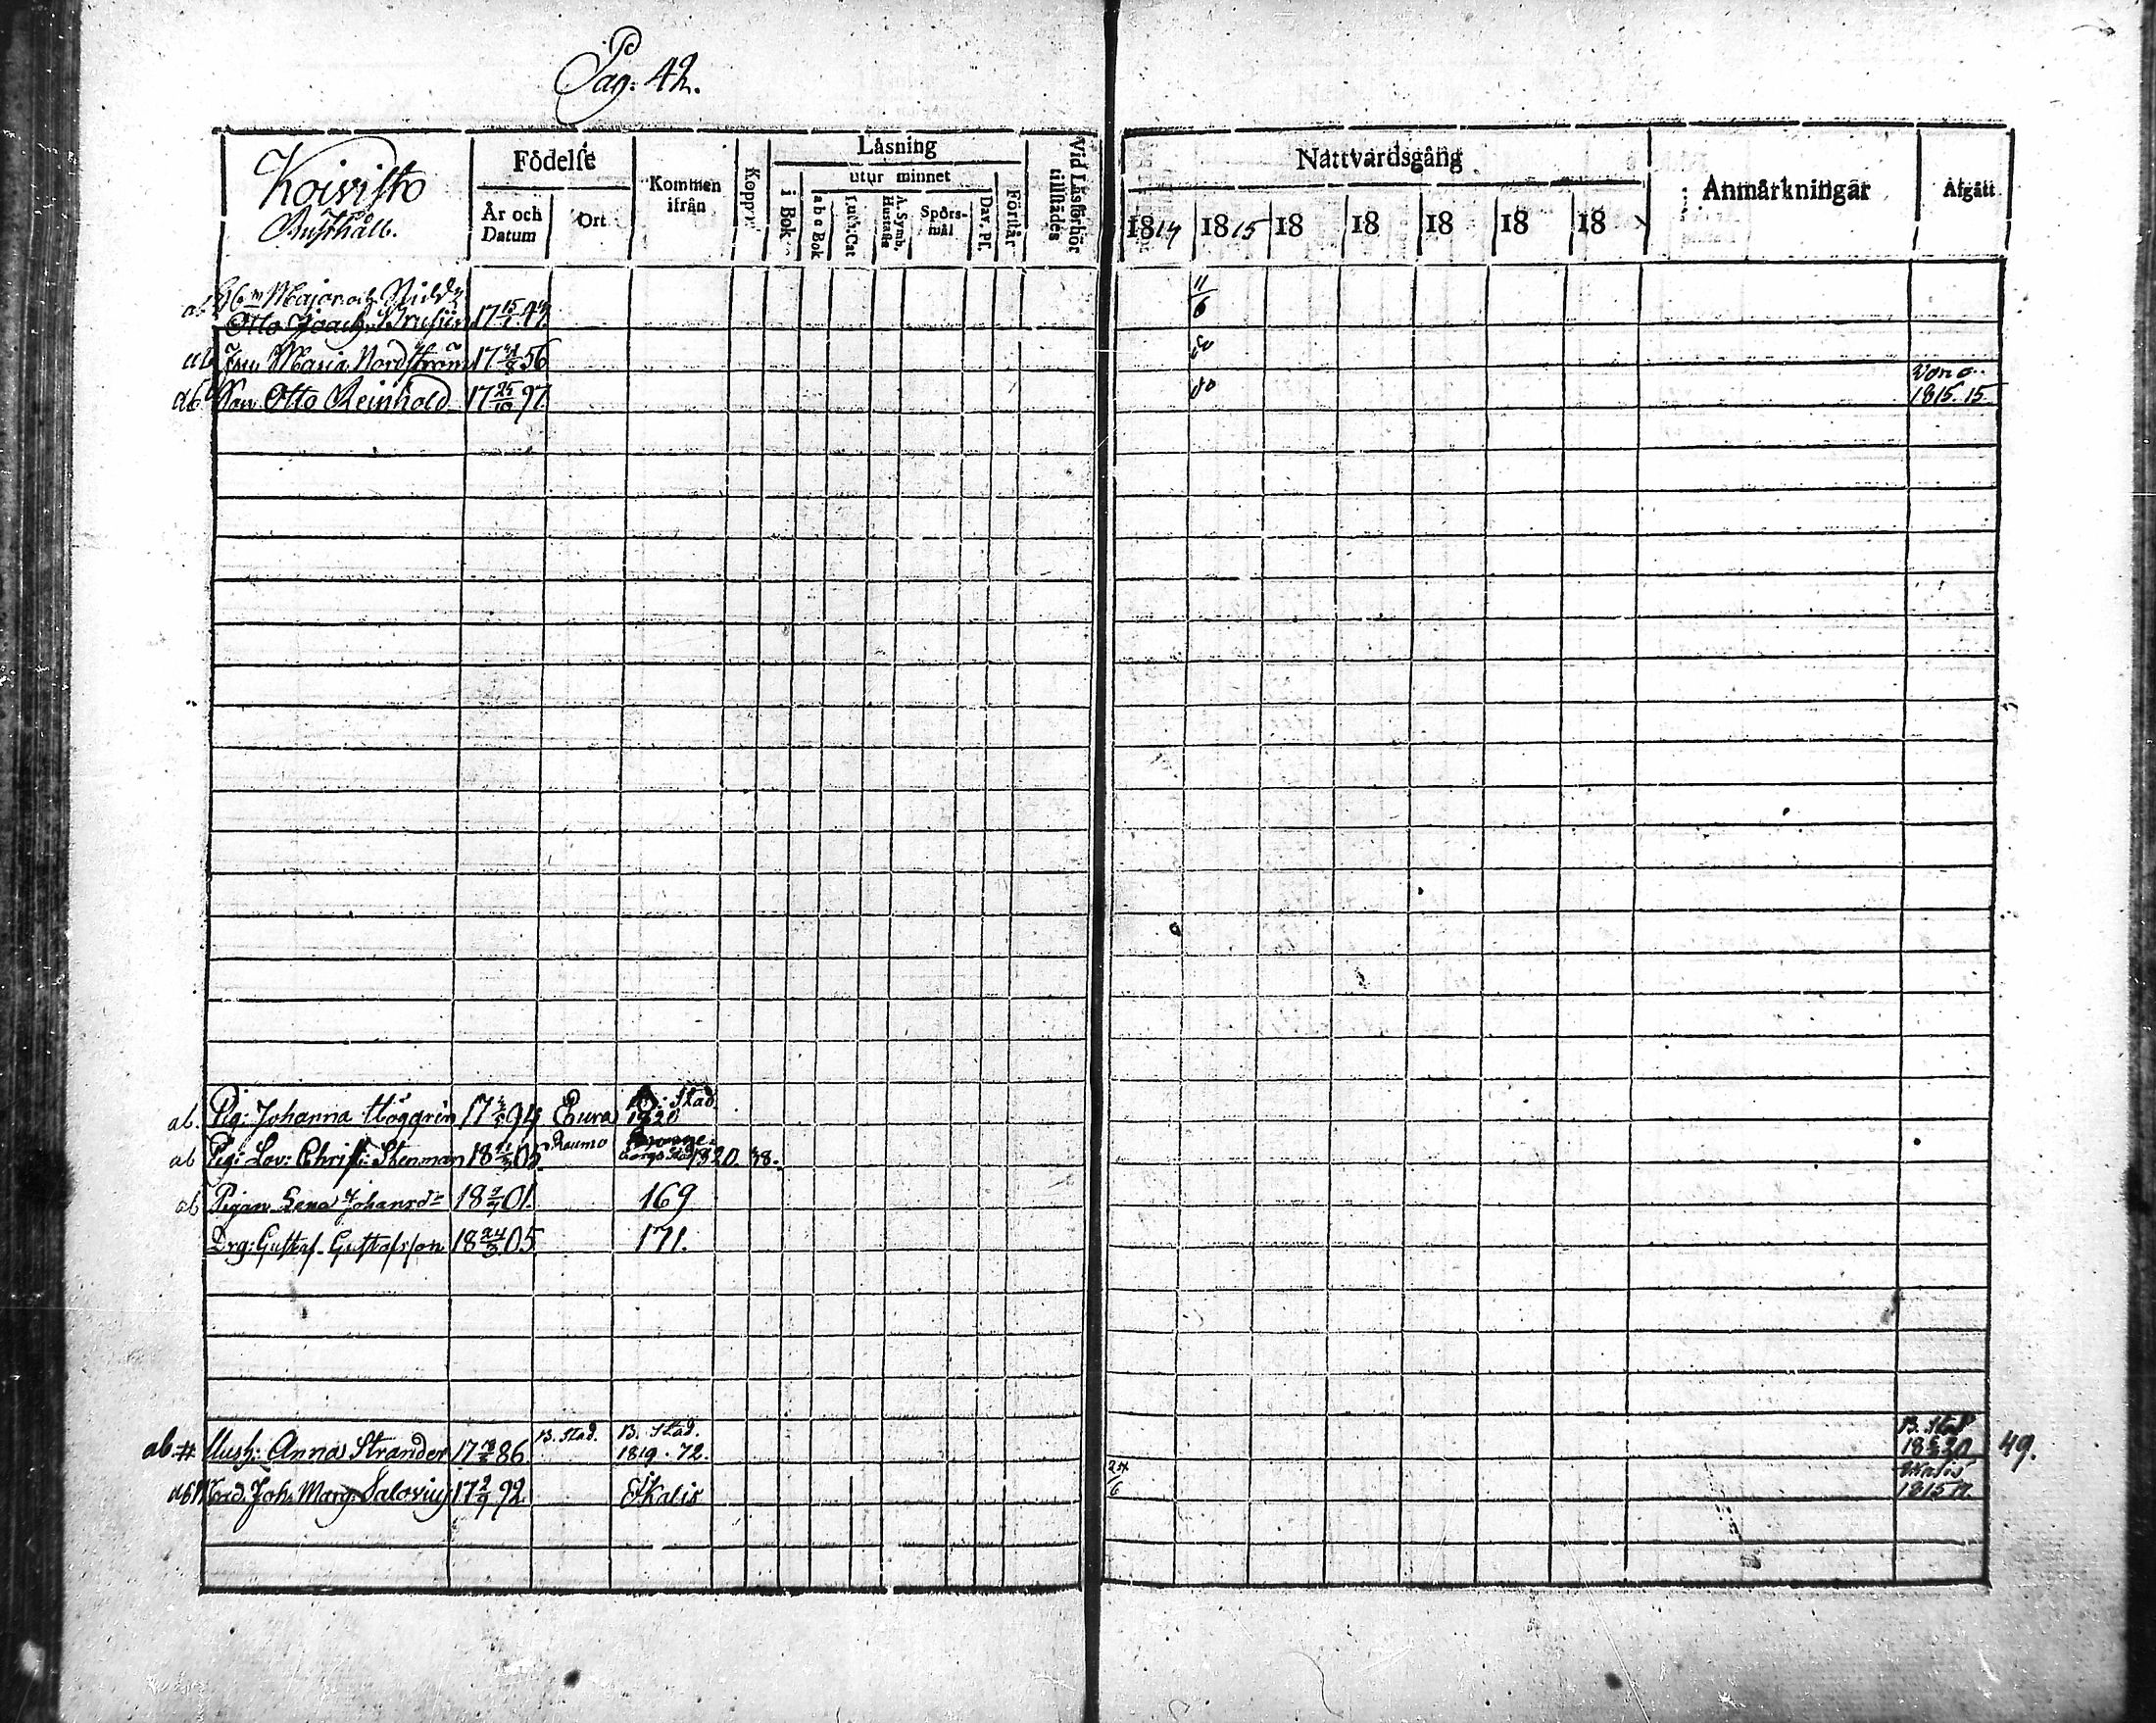 Pag: 42.
Koivisto
Rusthåll.
Födelse
År och Datum
Ort
Kommen ifrån
Koppor
Läsning
i Bok
utur minnet
a b c Bok
Luth: Cat
A. Symb. Hustafla
Spörsmål
Dav. Ps.
Förstår
Vid Läsförhör tillstädes
Nattvardsgång
1814 1815 18 18 18 18 18
Anmärkningar
Afgått
Major och Ridd:
ab Otto Joach: 17 15/1 47. 11/6
ab Fru Maria Nordström 17 56 do
ab Son Otto Reinhold 17 25/10 97. do 1815. 15.
ab. Pig: Johanna Höggrén 17 94 Eura B: Stad 1820
ab Pig: Lov: Christ: Stenman 18 05. Raumo 1820. 38.
ab Pigan Lena Johansdr 18 01. 169
Drg: Gustaf Gustafsson 18 24/3 05 171.
ab # Hush: Anna Strander 17 86. B. Stad. B. Stad. 1819. 72. B. Stad 1820 49.
ab Joh. Marg. Salovius 17 2/9 92. Ekalis 24/6 1815